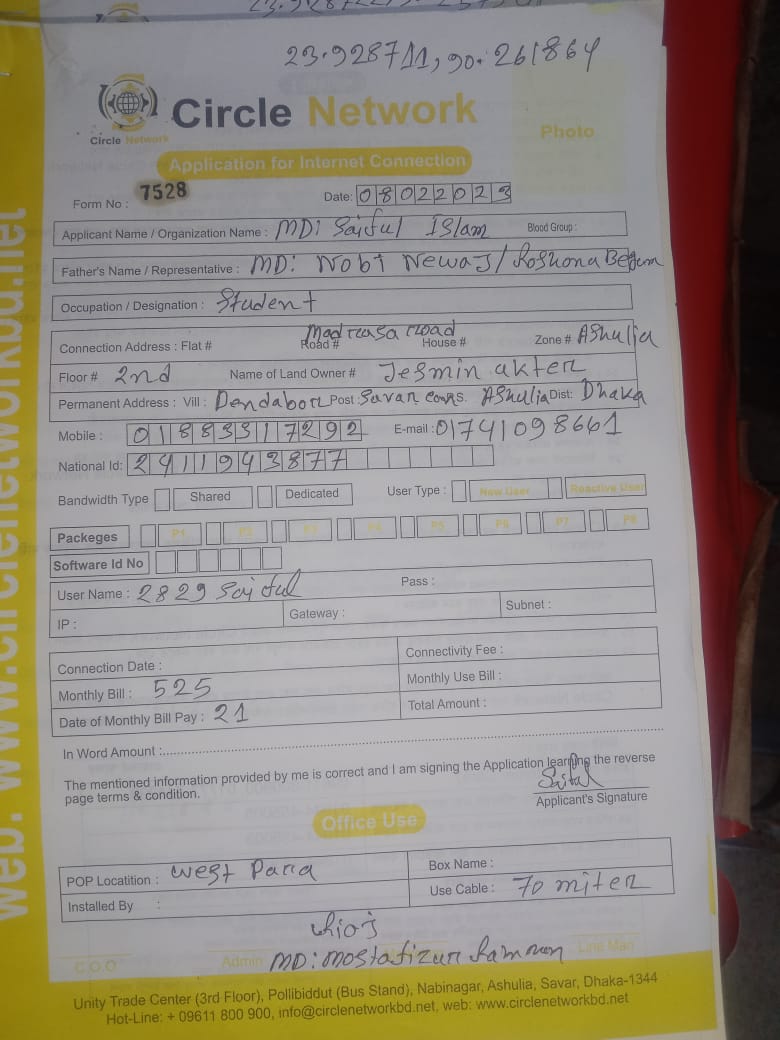 23.928711, 90.261864
Circle Network
Circle Network
Photo
Application for Internet Connection
Form No : 7528 Date: 08022023
Applicant Name / Organization Name : MD: Saiful Islam Blood Group :
Father's Name / Representative : MD: Nobi Newaj / Roshona Begum
Occupation / Designation : Student
Connection Address : Flat # Road # Madrasa road House # Zone # Ashulia
Floor # 2nd Name of Land Owner # Jesmin akter
Permanent Address : Vill : Dendabor Post : Savar Ashulia Dist: Dhaka
Mobile : 01883317292 E-mail : 01741098661
National Id: 2411943877
Bandwidth Type Shared Dedicated User Type : New User Reactive User
Packeges P1 P2 P3 P4 P5 P6 P7 P8
Software Id No
User Name : 2829 Saiful Pass :
IP : Gateway : Subnet :
Connection Date : Connectivity Fee :
Monthly Bill : 525 Monthly Use Bill :
Date of Monthly Bill Pay : 21 Total Amount :
In Word Amount :
The mentioned information provided by me is correct and I am signing the Application learning the reverse
page terms & condition.
Saiful
Applicant's Signature
Office Use
POP Locatition : West Para Box Name :
Installed By : Use Cable : 70 miter
MD: Mostafizur Rahman
C.O.O Admin Line Man
Unity Trade Center (3rd Floor), Pollibiddut (Bus Stand), Nabinagar, Ashulia, Savar, Dhaka-1344
Hot-Line: + 09611 800 900, info@circlenetworkbd.net, web: www.circlenetworkbd.net
web: www.circlenetworkbd.net